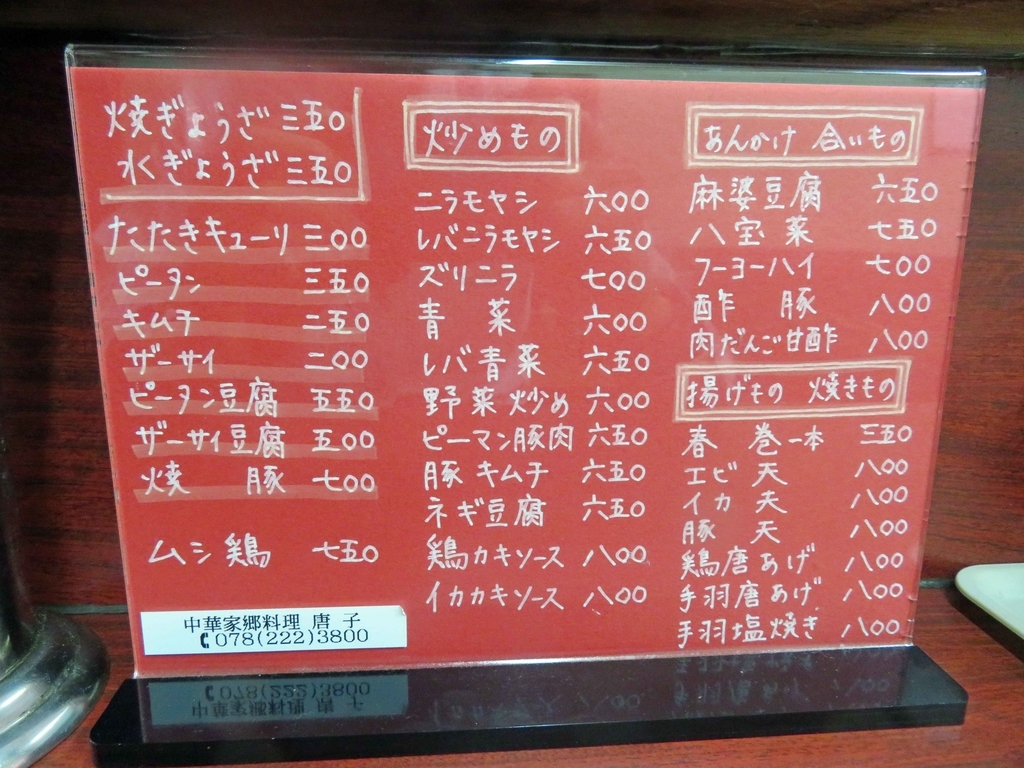 焼ぎょうざ 三五〇
水ぎょうざ 三五〇
たたきキューリ 三〇〇
ピータン 三五〇
キムチ 二五〇
ザーサイ 二〇〇
ピータン豆腐 五五〇
ザーサイ豆腐 五〇〇
焼 豚 七〇〇
ムシ鶏 七五〇
中華家郷料理 唐子
078(222)3800
炒めもの
ニラモヤシ 六〇〇
レバニラモヤシ 六五〇
ズリニラ 七〇〇
青 菜 六〇〇
レバ青菜 六五〇
野菜炒め 六〇〇
ピーマン豚肉 六五〇
豚キムチ 六五〇
ネギ豆腐 六五〇
鶏カキソース 八〇〇
イカカキソース 八〇〇
あんかけ 合いもの
麻婆豆腐 六五〇
八宝菜 七五〇
フーヨーハイ 七〇〇
酢 豚 八〇〇
肉だんご甘酢 八〇〇
揚げもの 焼きもの
春 巻 一本 三五〇
エビ 天 八〇〇
イカ 天 八〇〇
豚 天 八〇〇
鶏唐あげ 八〇〇
手羽唐あげ 八〇〇
手羽塩焼き 八〇〇